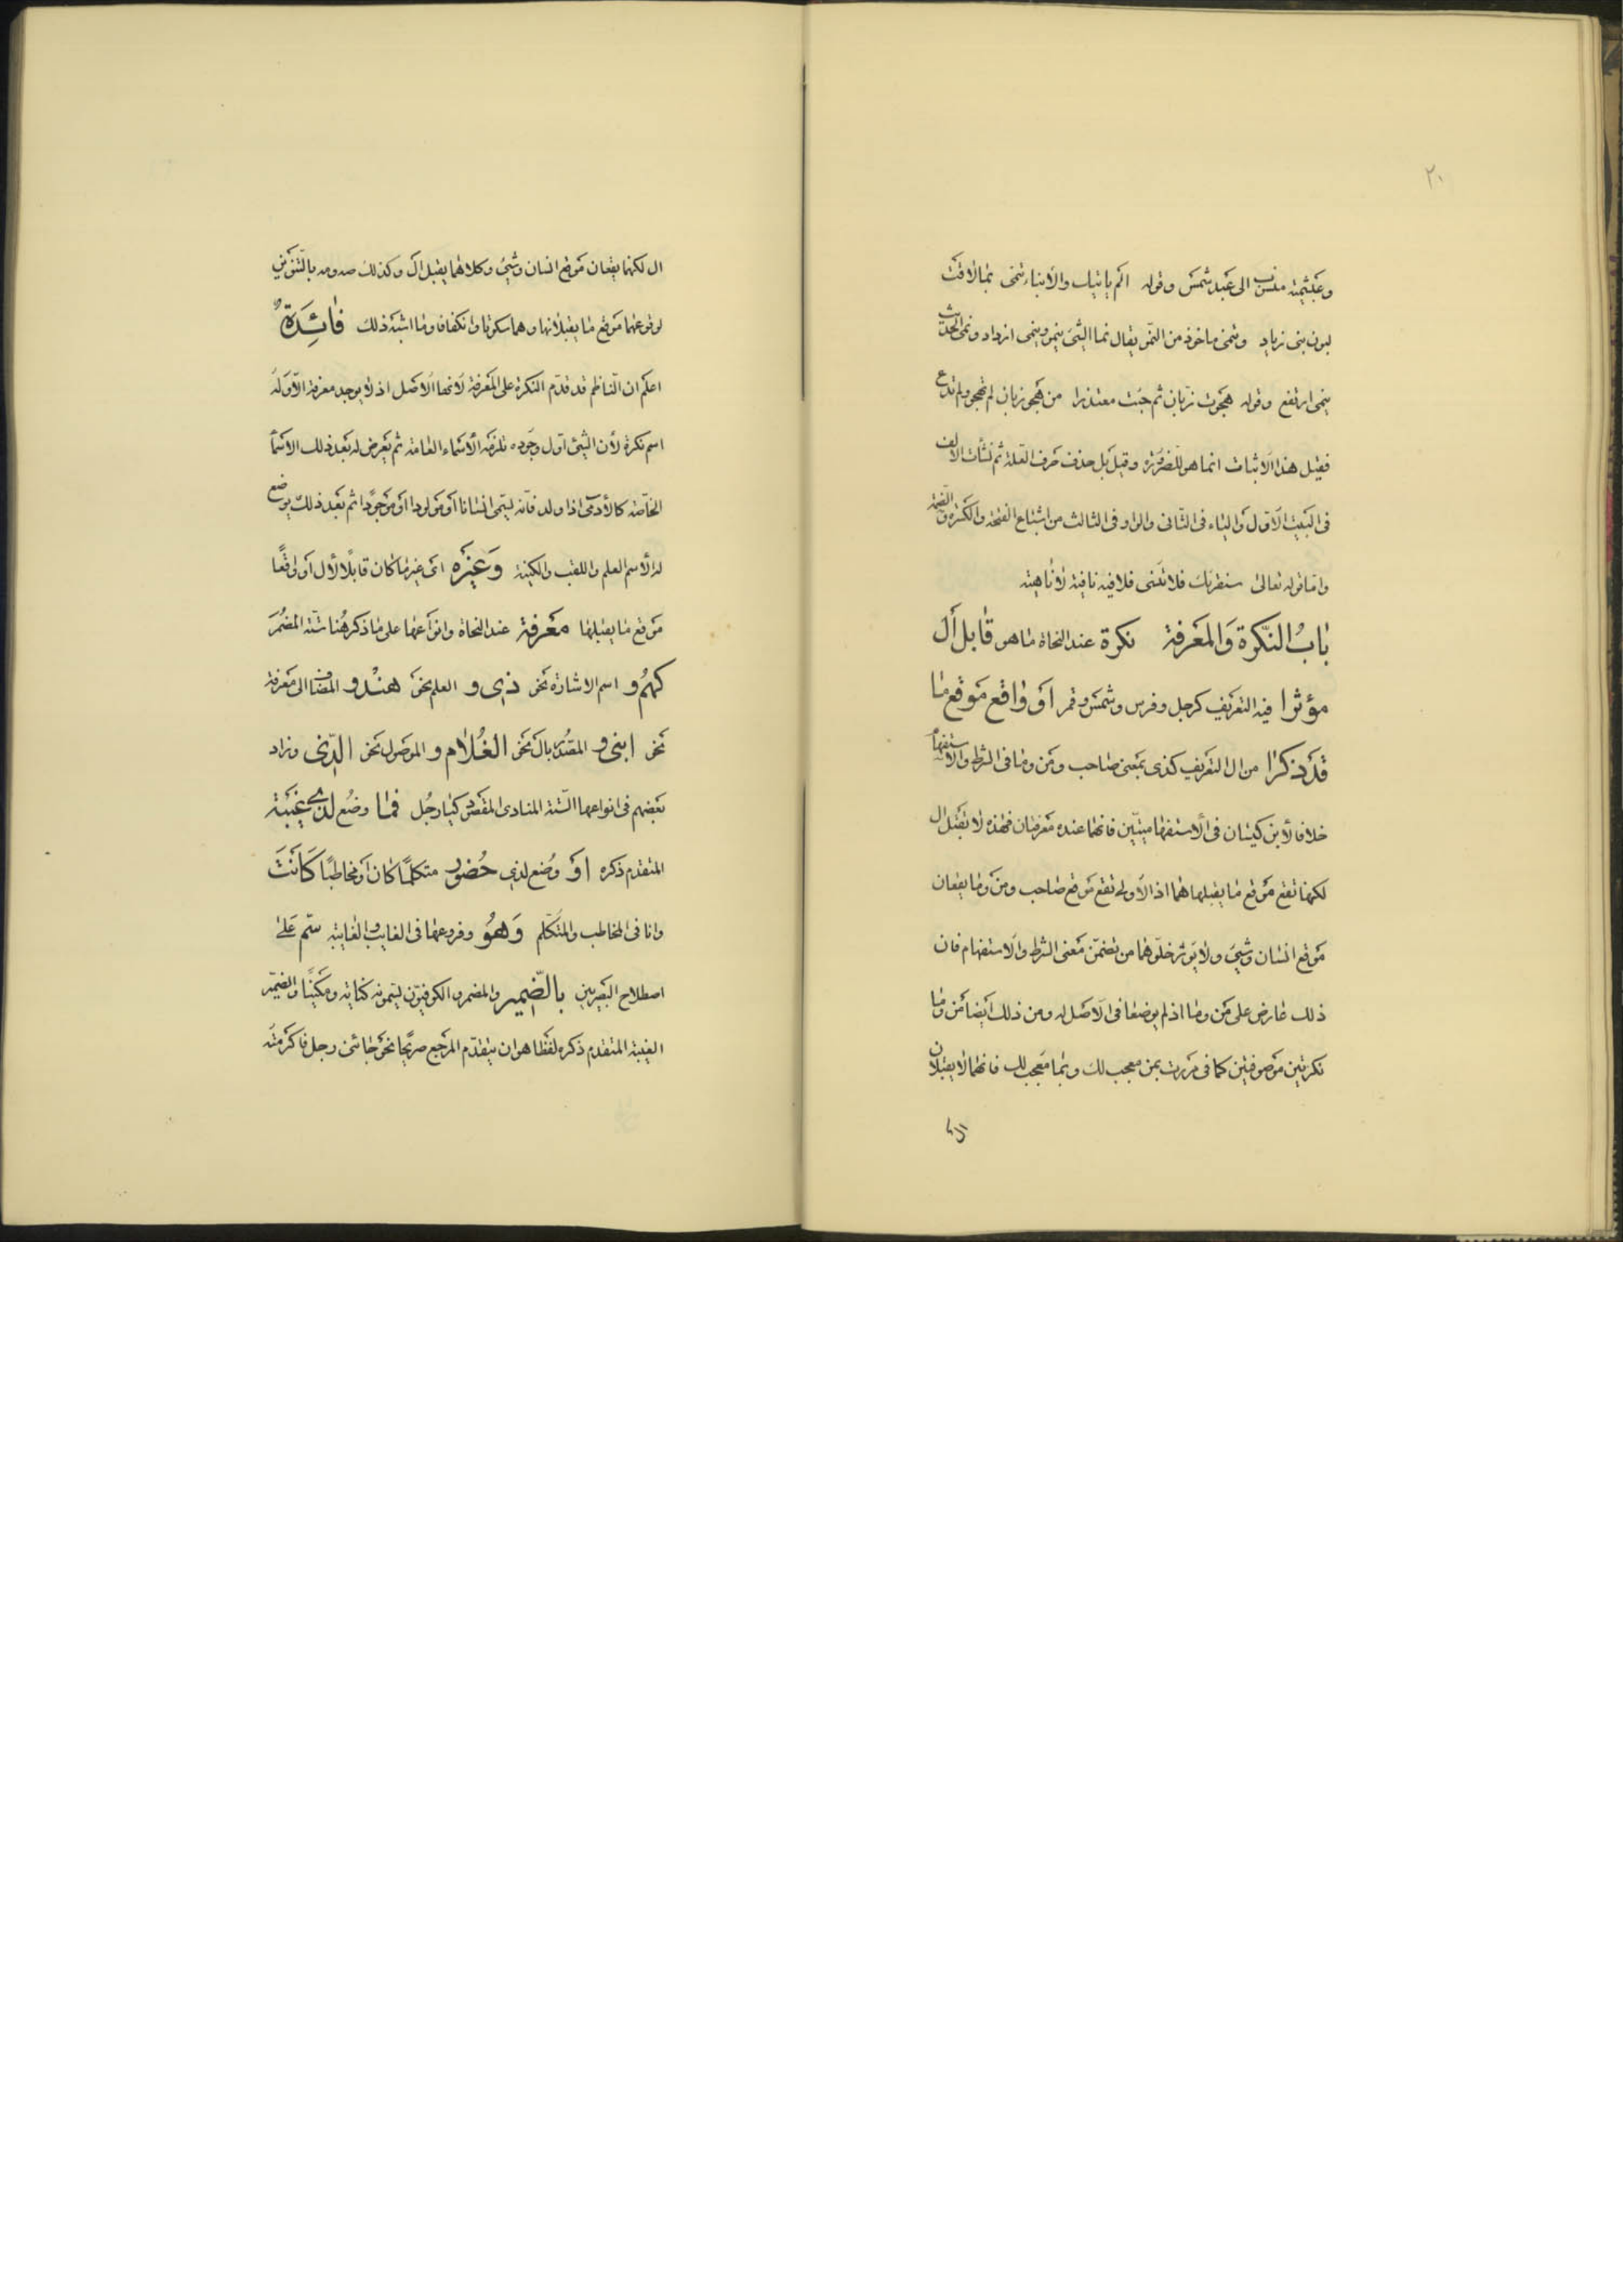 ٢٠
وعبشمية منسوب الى عبد شمس وقوله الم ياتيك والانباء تنمى بما لاقت
لبون بنى زياد وتنمى ماخوذ من النمو يقال نما الشئ ينمو وينمى ازداد ونمى الحديث
ينمى ارتفع وقوله هجوت زبان ثم جئت معتذرا من هجو زبان لم تهجو ولم تدع
فقيل هذا الاثبات انما هو للضرورة وقيل بل حذف حرف العلة ثم نشأت الالف
فى البيت الاول والياء فى الثانى والواو فى الثالث من اشباع الفتحة والكسرة والضمة
واما قوله تعالى سنقرئك فلا تنسى فلا فيه نافية لا ناهية
باب النكرة والمعرفة نكرة عند النحاة ما هو قابل أل
مؤثرا فيه التعريف كرجل وفرس وشمس وقمر او واقع موقع ما
قد ذكرا من ال التعريف كذى بمعنى صاحب ومن وما فى الشرط والاستفهام
خلافا لأبن كيسان فى الاستفهاميتين فانهما عنده معرفتان فهذه لا تقبل ال
لكنها تقع موقع ما يقبلها هما اذ الاولى تقع موقع صاحب ومن وما يقعان
موقع انسان وشئ ولا يؤثر خلوهما من تضمن معنى الشرط والاستفهام فان
ذلك عارض على من وما اذ لم يوضعا فى الاصل له ومن ذلك ايضا من وما
نكرتين موصوفتين كما فى مررت بمن معجب لك وبما معجب لك فانهما لا يقبلان
ال
ال لكنهما يقعان موقع انسان وشئ وكلاهما يقبل ال وكذلك صه ومه بالتنوين
لوقوعهما موقع ما يقبلانها وهما سكوتا وانكفافا وما اشبه ذلك فائدة
اعلم ان الناظم قد قدم النكرة على المعرفة لانها الاصل اذ لا يوجد معرفة الا وله
اسم نكرة لأن الشئ اول وجوده تلزمه الأسماء العامة ثم يعرض له بعد ذلك الاسما
الخاصة كالأدمى اذا ولد فانه يسمى انسانا او مولودا او موجودا ثم بعد ذلك يوضع
له الأسم العلم واللقب والكنية وغيره اى غير ما كان قابلا لأل او واقعا
موقع ما يقبلها معرفة عند النحاة وانواعها على ما ذكر هنا ستة المضمر
كهم و اسم الاشارة نحو ذى و العلم نحو هند و المضاف الى معرفة
نحو ابنى و المصدر بال نحو الغلام و الموصول نحو الذى وزاد
بعضهم فى انواعها الستة المنادى المقصود كيا رجل فما وضع لذى غيبة
المتقدم ذكره او وضع لذى حضور متكلما كان او مخاطبا كانت
وانا فى المخاطب والمتكلم وهو وفروعها فى الغايب والغايبة سم على
اصطلاح البصريين بالضمير والمضمر والكوفيون يسمونه كناية ومكنيا والضمير
الغيبة المتقدم ذكره لفظا هو ان يتقدم المرجع صريحا نحو جائنى رجل فاكرمته